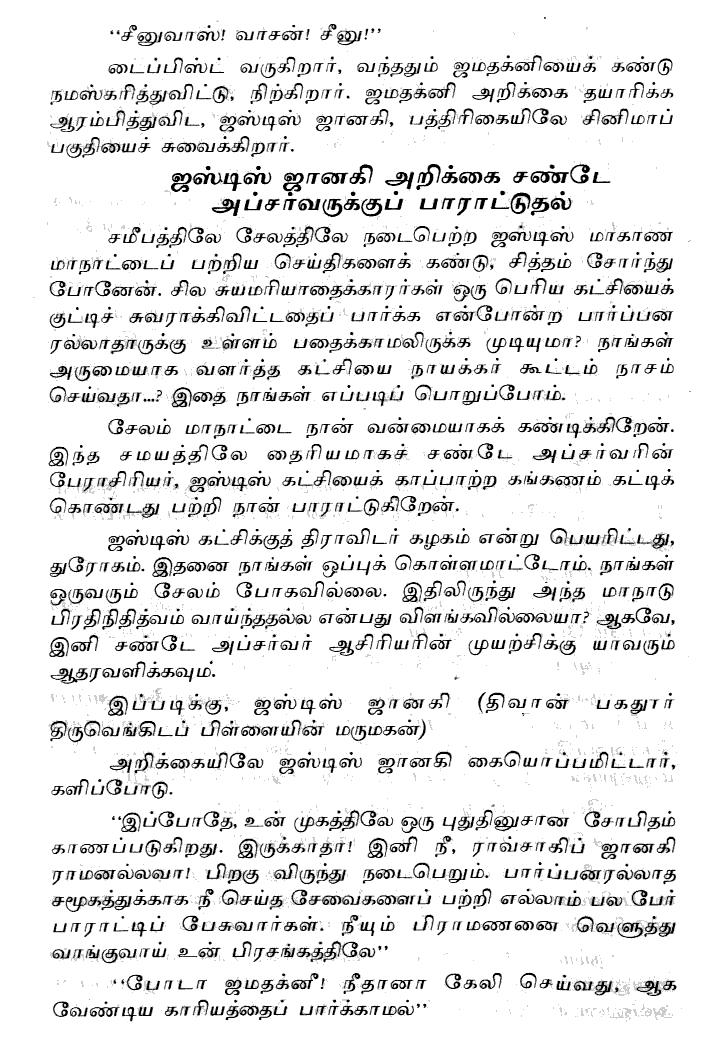 ‘‘சீனுவாஸ்! வாசன்! சீனு!’’
டைப்பிஸ்ட் வருகிறார், வந்ததும் ஜமதக்னியைக் கண்டு
நமஸ்கரித்துவிட்டு, நிற்கிறார். ஜமதக்னி அறிக்கை தயாரிக்க
ஆரம்பித்துவிட, ஜஸ்டிஸ் ஜானகி, பத்திரிகையிலே சினிமாப்
பகுதியைச் சுவைக்கிறார்.
ஜஸ்டிஸ் ஜானகி அறிக்கை சண்டே
அப்சர்வருக்குப் பாராட்டுதல்
சமீபத்திலே சேலத்திலே நடைபெற்ற ஜஸ்டிஸ் மாகாண
மாநாட்டைப் பற்றிய செய்திகளைக் கண்டு, சித்தம் சோர்ந்து
போனேன். சில சுயமரியாதைக்காரர்கள் ஒரு பெரிய கட்சியைக்
குட்டிச் சுவராக்கிவிட்டதைப் பார்க்க என்போன்ற பார்ப்பன
ரல்லாதாருக்கு உள்ளம் பதைக்காமலிருக்க முடியுமா? நாங்கள்
அருமையாக வளர்த்த கட்சியை நாயக்கர் கூட்டம் நாசம்
செய்வதா...? இதை நாங்கள் எப்படிப் பொறுப்போம்.
சேலம் மாநாட்டை நான் வன்மையாகக் கண்டிக்கிறேன்.
இந்த சமயத்திலே தைரியமாகச் சண்டே அப்சர்வரின்
பேராசிரியர், ஜஸ்டிஸ் கட்சியைக் காப்பாற்ற கங்கணம் கட்டிக்
கொண்டது பற்றி நான் பாராட்டுகிறேன்.
ஜஸ்டிஸ் கட்சிக்குத் திராவிடர் கழகம் என்று பெயரிட்டது,
துரோகம். இதனை நாங்கள் ஒப்புக் கொள்ளமாட்டோம். நாங்கள்
ஒருவரும் சேலம் போகவில்லை. இதிலிருந்து அந்த மாநாடு
பிரதிநிதித்வம் வாய்ந்ததல்ல என்பது விளங்கவில்லையா? ஆகவே,
இனி சண்டே அப்சர்வர் ஆசிரியரின் முயற்சிக்கு யாவரும்
ஆதரவளிக்கவும்.
இப்படிக்கு, ஜஸ்டிஸ் ஜானகி (திவான் பகதூர்
திருவெங்கிடப் பிள்ளையின் மருமகன்)
அறிக்கையிலே ஜஸ்டிஸ் ஜானகி கையொப்பமிட்டார்,
களிப்போடு.
‘‘இப்போதே, உன் முகத்திலே ஒரு புதுதினுசான சோபிதம்
காணப்படுகிறது. இருக்காதா! இனி நீ, ராவ்சாகிப் ஜானகி
ராமனல்லவா! பிறகு விருந்து நடைபெறும். பார்ப்பனரல்லாத
சமூகத்துக்காக நீ செய்த சேவைகளைப் பற்றி எல்லாம் பல பேர்
பாராட்டிப் பேசுவார்கள். நீயும் பிராமணனை வெளுத்து
வாங்குவாய் உன் பிரசங்கத்திலே’’
‘‘போடா ஜமதக்னீ! நீதானா கேலி செய்வது, ஆக
வேண்டிய காரியத்தைப் பார்க்காமல்’’